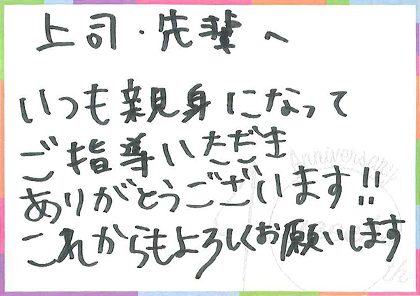 上司・先輩へ
いつも親身になって
ご指導いただき
ありがとうございます!!
これからもよろしくお願いします
Anniversary
th